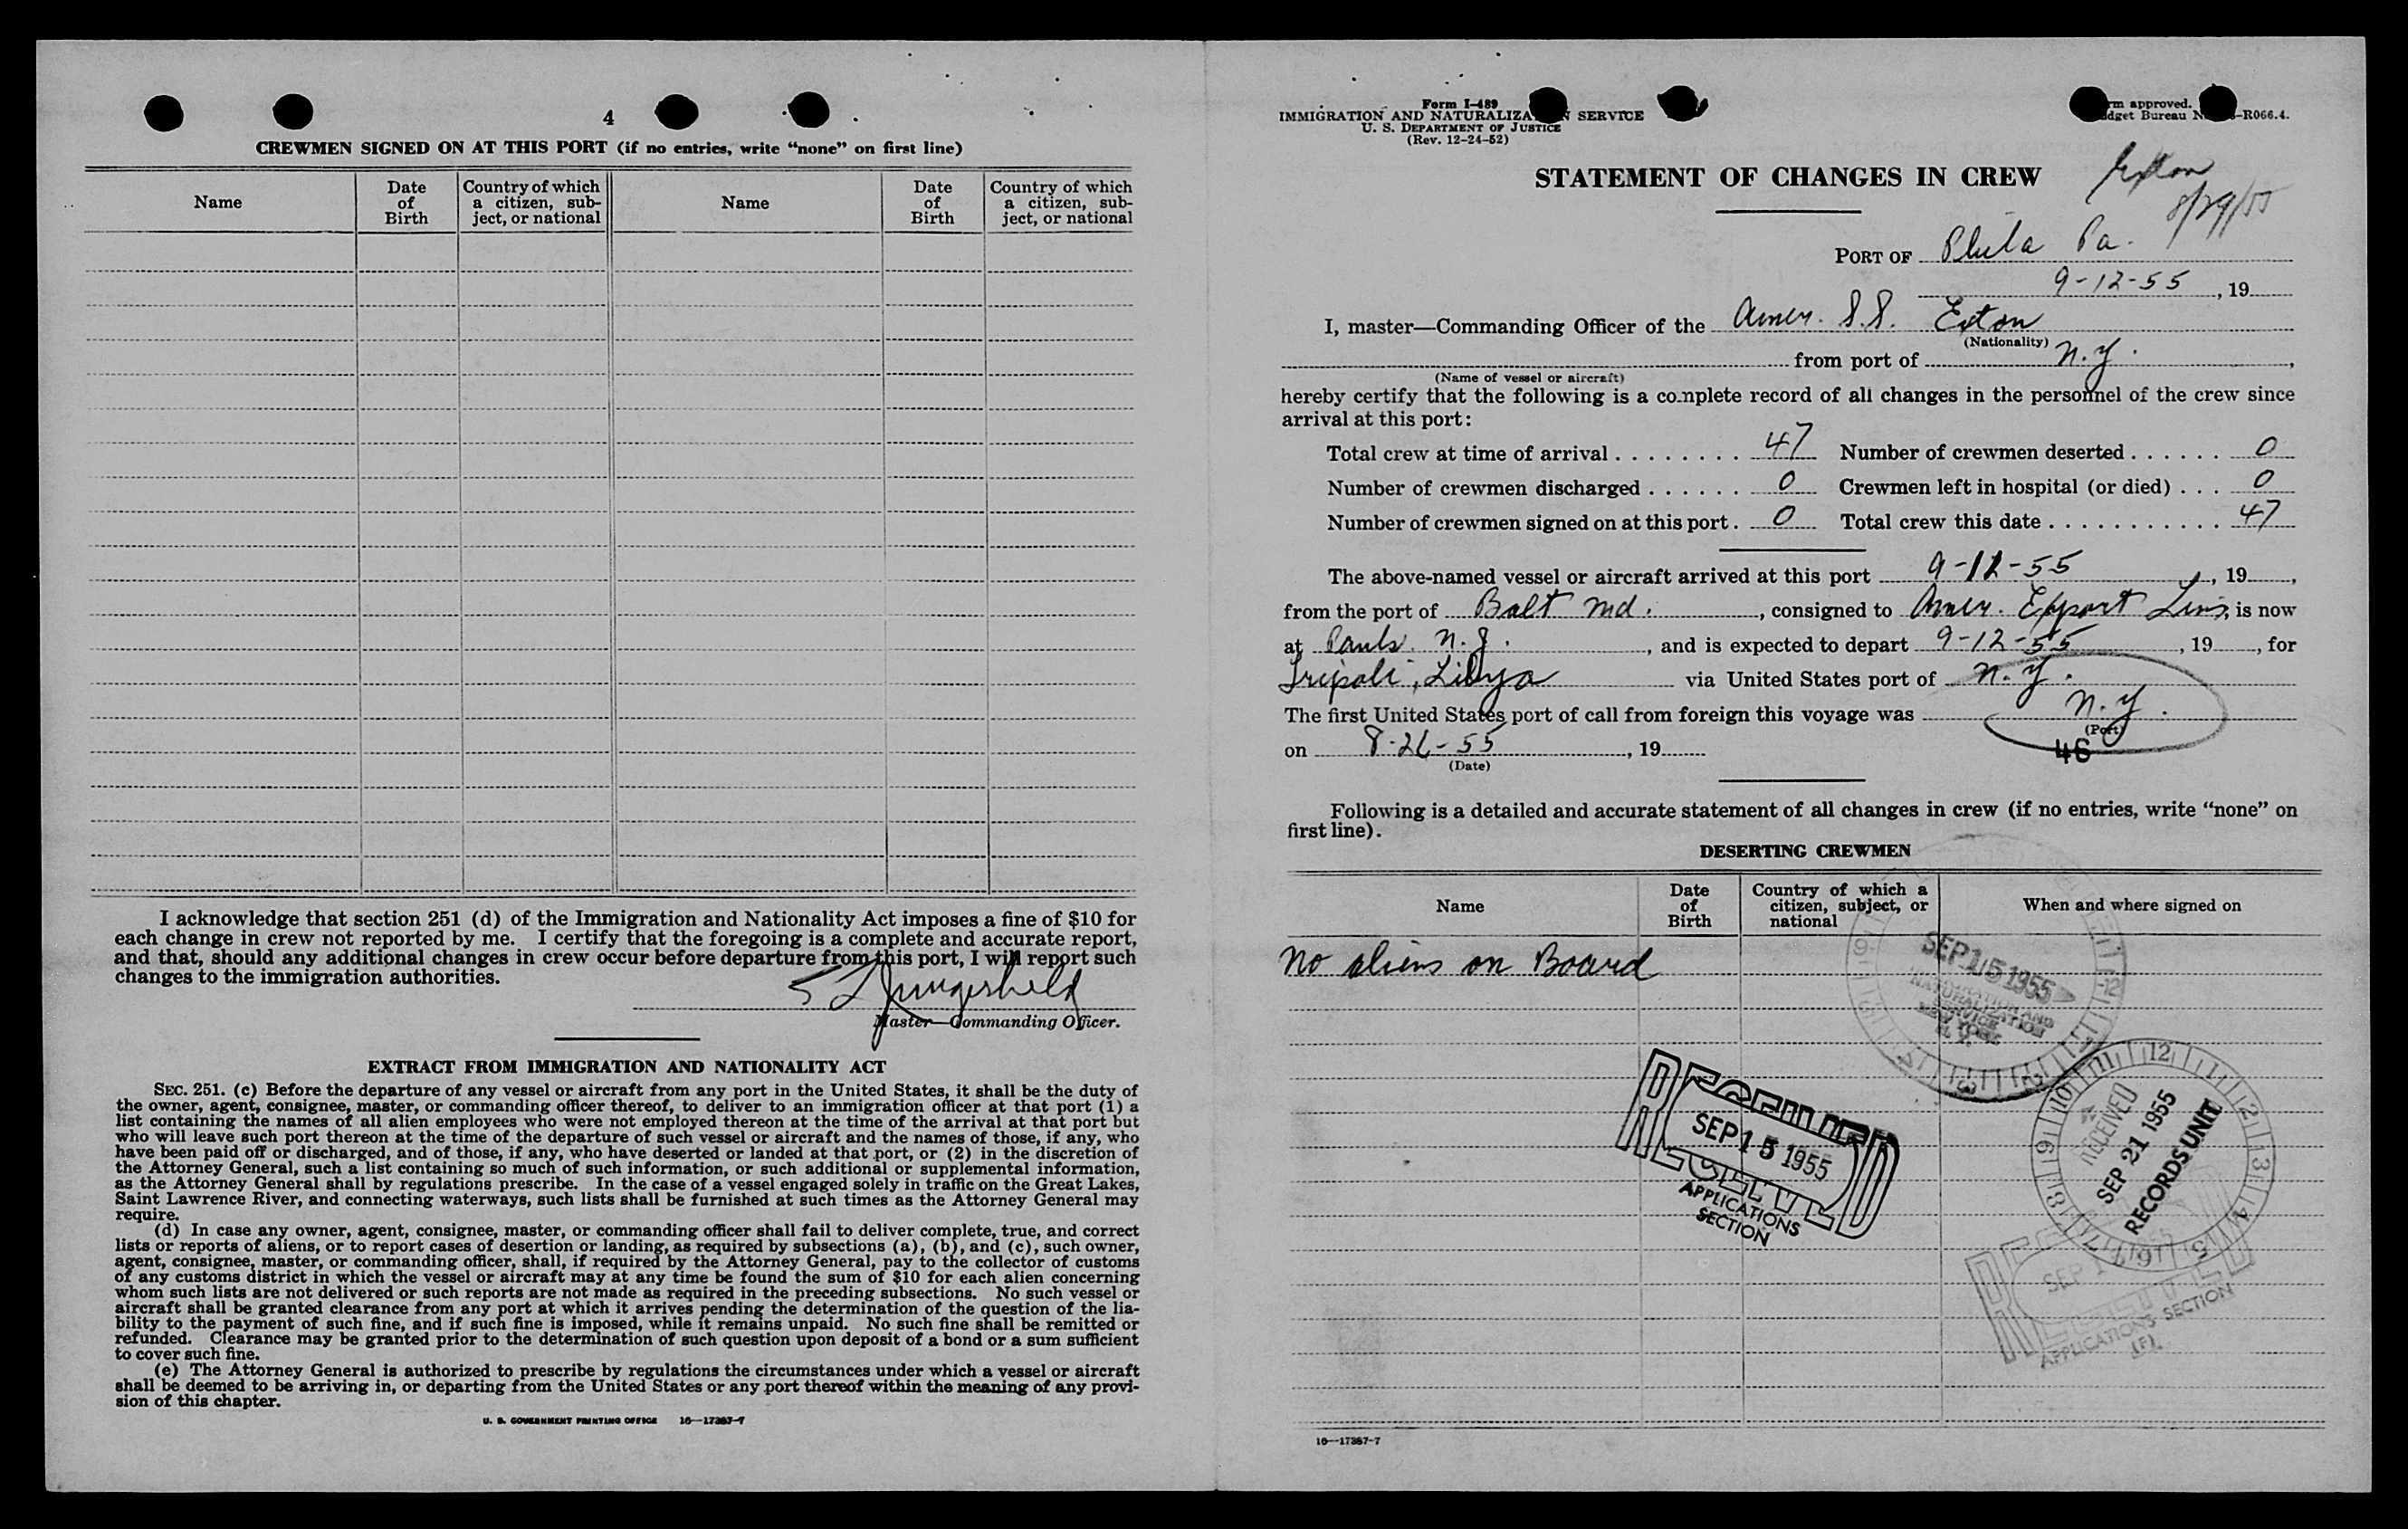 4
CREWMEN SIGNED ON AT THIS PORT (if no entries, write “none” on first line)
Name
Date of Birth
Country of which a citizen, subject, or national
Name
Date of Birth
Country of which a citizen, subject, or national
I acknowledge that section 251 (d) of the Immigration and Nationality Act imposes a fine of $10 for
each change in crew not reported by me. I certify that the foregoing is a complete and accurate report,
and that, should any additional changes in crew occur before departure from this port, I will report such
changes to the immigration authorities.
Master—Commanding Officer.
EXTRACT FROM IMMIGRATION AND NATIONALITY ACT
SEC. 251. (c) Before the departure of any vessel or aircraft from any port in the United States, it shall be the duty of
the owner, agent, consignee, master, or commanding officer thereof, to deliver to an immigration officer at that port (1) a
list containing the names of all alien employees who were not employed thereon at the time of the arrival at that port but
who will leave such port thereon at the time of the departure of such vessel or aircraft and the names of those, if any, who
have been paid off or discharged, and of those, if any, who have deserted or landed at that port, or (2) in the discretion of
the Attorney General, such a list containing so much of such information, or such additional or supplemental information,
as the Attorney General shall by regulations prescribe. In the case of a vessel engaged solely in traffic on the Great Lakes,
Saint Lawrence River, and connecting waterways, such lists shall be furnished at such times as the Attorney General may
require.
(d) In case any owner, agent, consignee, master, or commanding officer shall fail to deliver complete, true, and correct
lists or reports of aliens, or to report cases of desertion or landing, as required by subsections (a), (b), and (c), such owner,
agent, consignee, master, or commanding officer, shall, if required by the Attorney General, pay to the collector of customs
of any customs district in which the vessel or aircraft may at any time be found the sum of $10 for each alien concerning
whom such lists are not delivered or such reports are not made as required in the preceding subsections. No such vessel or
aircraft shall be granted clearance from any port at which it arrives pending the determination of the question of the lia-
bility to the payment of such fine, and if such fine is imposed, while it remains unpaid. No such fine shall be remitted or
refunded. Clearance may be granted prior to the determination of such question upon deposit of a bond or a sum sufficient
to cover such fine.
(e) The Attorney General is authorized to prescribe by regulations the circumstances under which a vessel or aircraft
shall be deemed to be arriving in, or departing from the United States or any port thereof within the meaning of any provi-
sion of this chapter.
U. S. GOVERNMENT PRINTING OFFICE 16—17387-7
Form I-489
IMMIGRATION AND NATURALIZATION SERVICE
U. S. DEPARTMENT OF JUSTICE
(Rev. 12-24-52)
rm approved.
dget Bureau N -R066.4.
STATEMENT OF CHANGES IN CREW
Exton
8/29/55
PORT OF Phila Pa.
9-12-55, 19
I, master—Commanding Officer of the Amer. S.S. Exton
(Nationality)
from port of N.Y.
(Name of vessel or aircraft)
hereby certify that the following is a complete record of all changes in the personnel of the crew since
arrival at this port:
Total crew at time of arrival 47 Number of crewmen deserted 0
Number of crewmen discharged 0 Crewmen left in hospital (or died) 0
Number of crewmen signed on at this port 0 Total crew this date 47
The above-named vessel or aircraft arrived at this port 9-12-55, 19,
from the port of Balt Md., consigned to Amer. Export Lins, is now
at Pauls. N.J., and is expected to depart 9-12-55, 19, for
Tripoli, Libya via United States port of N.Y.
The first United States port of call from foreign this voyage was N.Y.
(Port)
on 8-26-55, 19
46
(Date)
Following is a detailed and accurate statement of all changes in crew (if no entries, write “none” on
first line).
DESERTING CREWMEN
Name
Date of Birth
Country of which a citizen, subject, or national
When and where signed on
No aliens on Board
SEP 15 1955
IMMIGRATION AND
NATURALIZATION
SERVICE
NEW YORK
N. Y.
RECEIVED
SEP 15 1955
APPLICATIONS
SECTION
RECEIVED
SEP 21 1955
RECORDS UNIT
RECEIVED
SEP 1
APPLICATIONS SECTION
(F)
16—17387-7